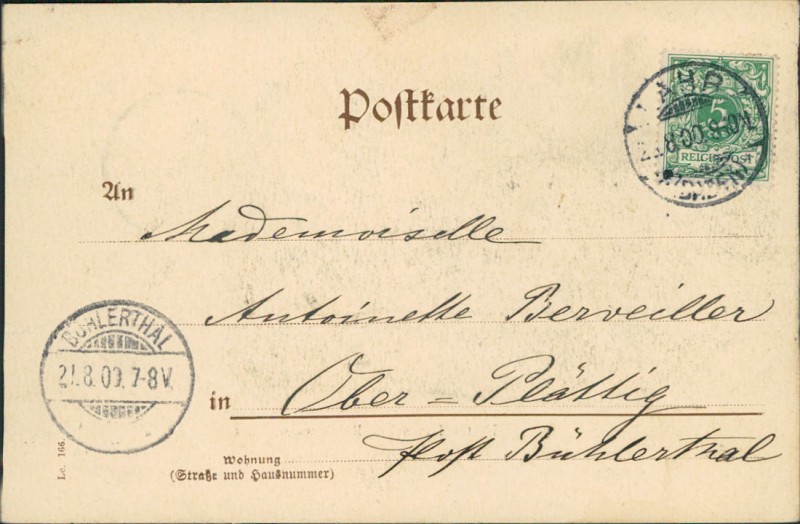 Postkarte
LAHR
5
REICHSPOST
An
Mademoiselle
Antoinette Berveiller
BÜHLERTHAL
21.8.00.7-8V.
in Ober-Plättig
Post Bühlerthal
Wohnung
(Straße und Hausnummer)
Le. 166.